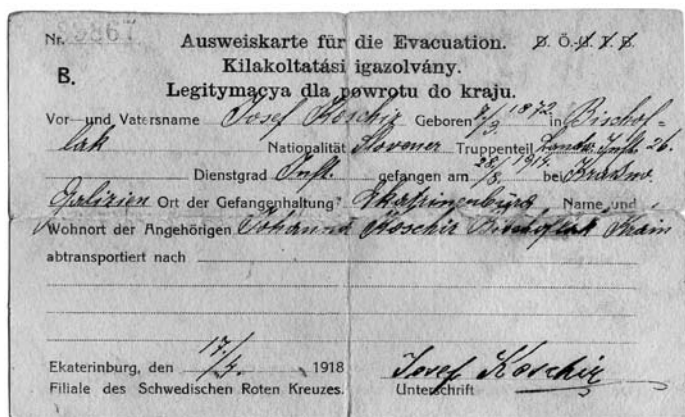 Nr. 33867 Ausweiskarte für die Evacuation. Ö.
B. Kilakoltatási igazolvány.
Legitymacya dla powrotu do kraju.
Vor- und Vatersname Josef Koschir Geboren 9/3. 1872 in Bischof-
lak Nationalität Slovener Truppenteil Landw. Inft. 26.
Dienstgrad Inft. gefangen am 28/8. 1914 bei
Galizien Ort der Gefangenhaltung Ekatrinenburg Name und
Wohnort der Angehörigen Johanna Koschir Bischoflak Krain
abtransportiert nach
Ekaterinburg, den 17/4. 1918 Josef Koschir
Filiale des Schwedischen Roten Kreuzes. Unterschrift